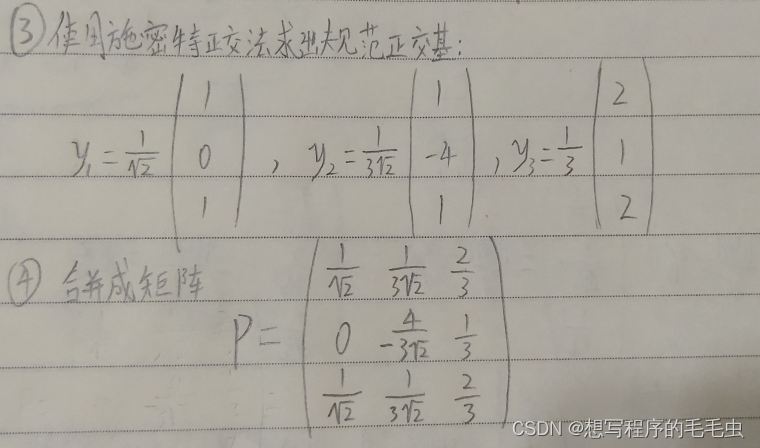 ③使用施密特正交法求出规范正交基：
y₁ = 1/√2 (1 0 1), y₂ = 1/3√2 (1 -4 1), y₃ = 1/3 (2 1 2)
④ 合并成矩阵
P = (1/√2 1/3√2 2/3
0 4/-3√2 1/3
1/√2 1/3√2 2/3)
CSDN @想写程序的毛毛虫